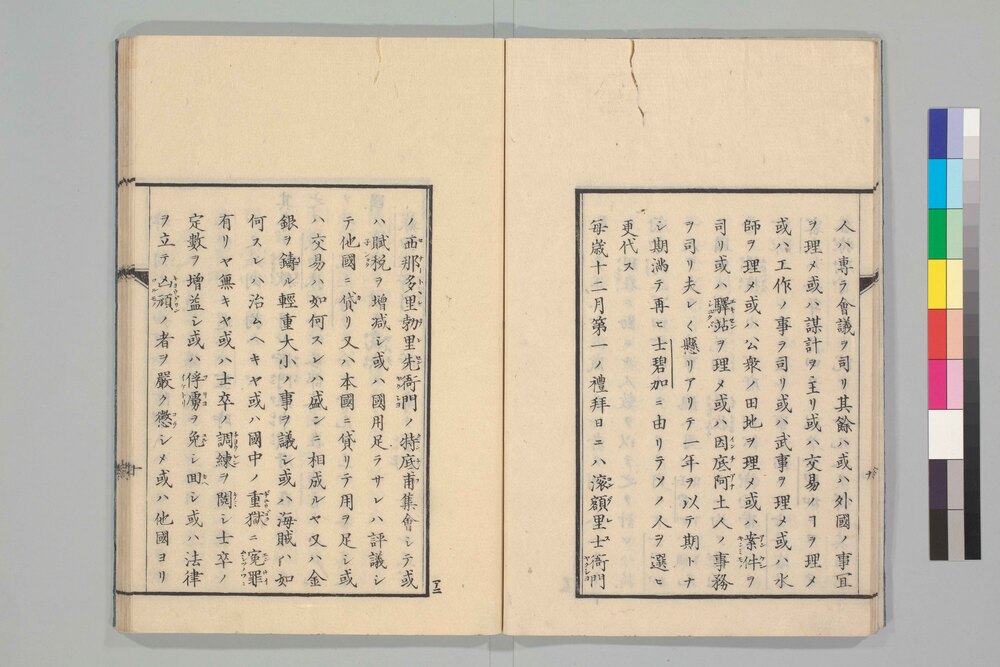 人ハ專ラ會議ヲ司リ其餘ハ或ハ外國ノ事宜
ヲ理メ或ハ謀計ヲ主リ或ハ交易ノヿヲ理メ
或ハ工作ノ事ヲ司リ或ハ武事ヲ理メ或ハ水
師ヲ理メ或ハ公衆ノ田地ヲ理メ或ハ案件ヲ
司リ或ハ驛站ヲ理メ或ハ因底阿土人ノ事務
ヲ司リ夫レ〱懸リアリテ一年ヲ以テ期トナ
シ期滿テ再ヒ士碧加ニ由リテソノ人ヲ選ヒ
更代ス
每歲十二月第一ノ禮拜日ニハ滚額里士衙門
ノ西那多里勃里先衙門ノ特底甫集會シテ或
ハ賦稅ヲ增減シ或ハ國用足ラサレハ評議シ
テ他國ニ貸リ又ハ本國ニ貸リテ用ヲ足シ或
ハ交易ハ如何スレハ盛ンニ相成ルヤ又ハ金
銀ヲ鑄ル輕重大小ノ事ヲ議シ或ハ海賊ハ如
何スレハ治ムヘキヤ或ハ國中ノ重獄ニ冤罪
有リヤ無キヤ或ハ士卒ノ調練ヲ閱シ士卒ノ
定數ヲ增益シ或ハ俘虜ヲ免シ回シ或ハ法律
ヲ立テ凶頑ノ者ヲ嚴ク懲シメ或ハ他國ヨリ